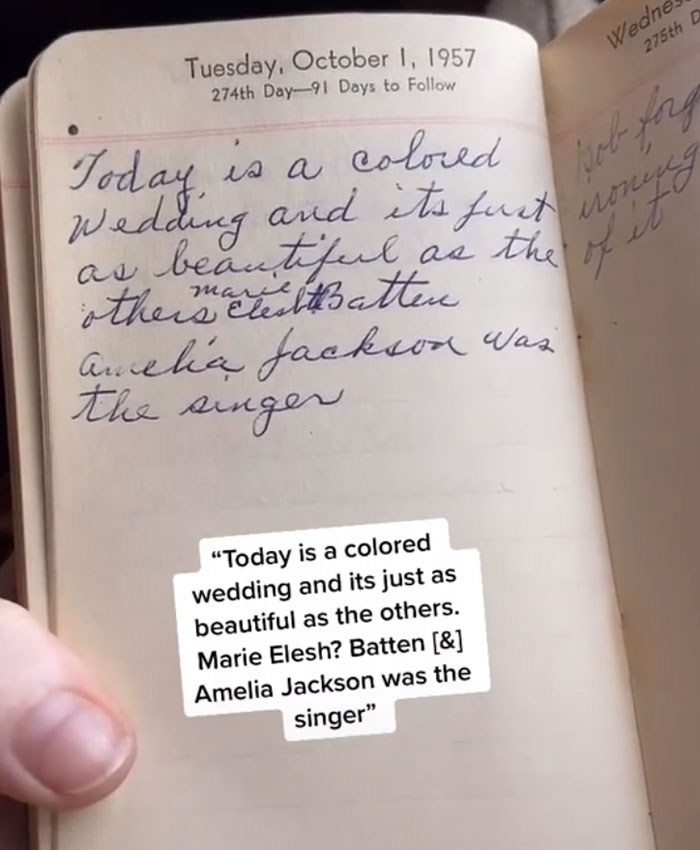 Tuesday, October 1, 1957
274th Day—91 Days to Follow
Today is a colored
Wedding and its just
as beautiful as the
marie
others Batten
Amelia Jackson was
the singer
Wednes
275th D
Bob forg
ironing
of it
“Today is a colored
wedding and its just as
beautiful as the others.
Marie Elesh? Batten [&]
Amelia Jackson was the
singer”